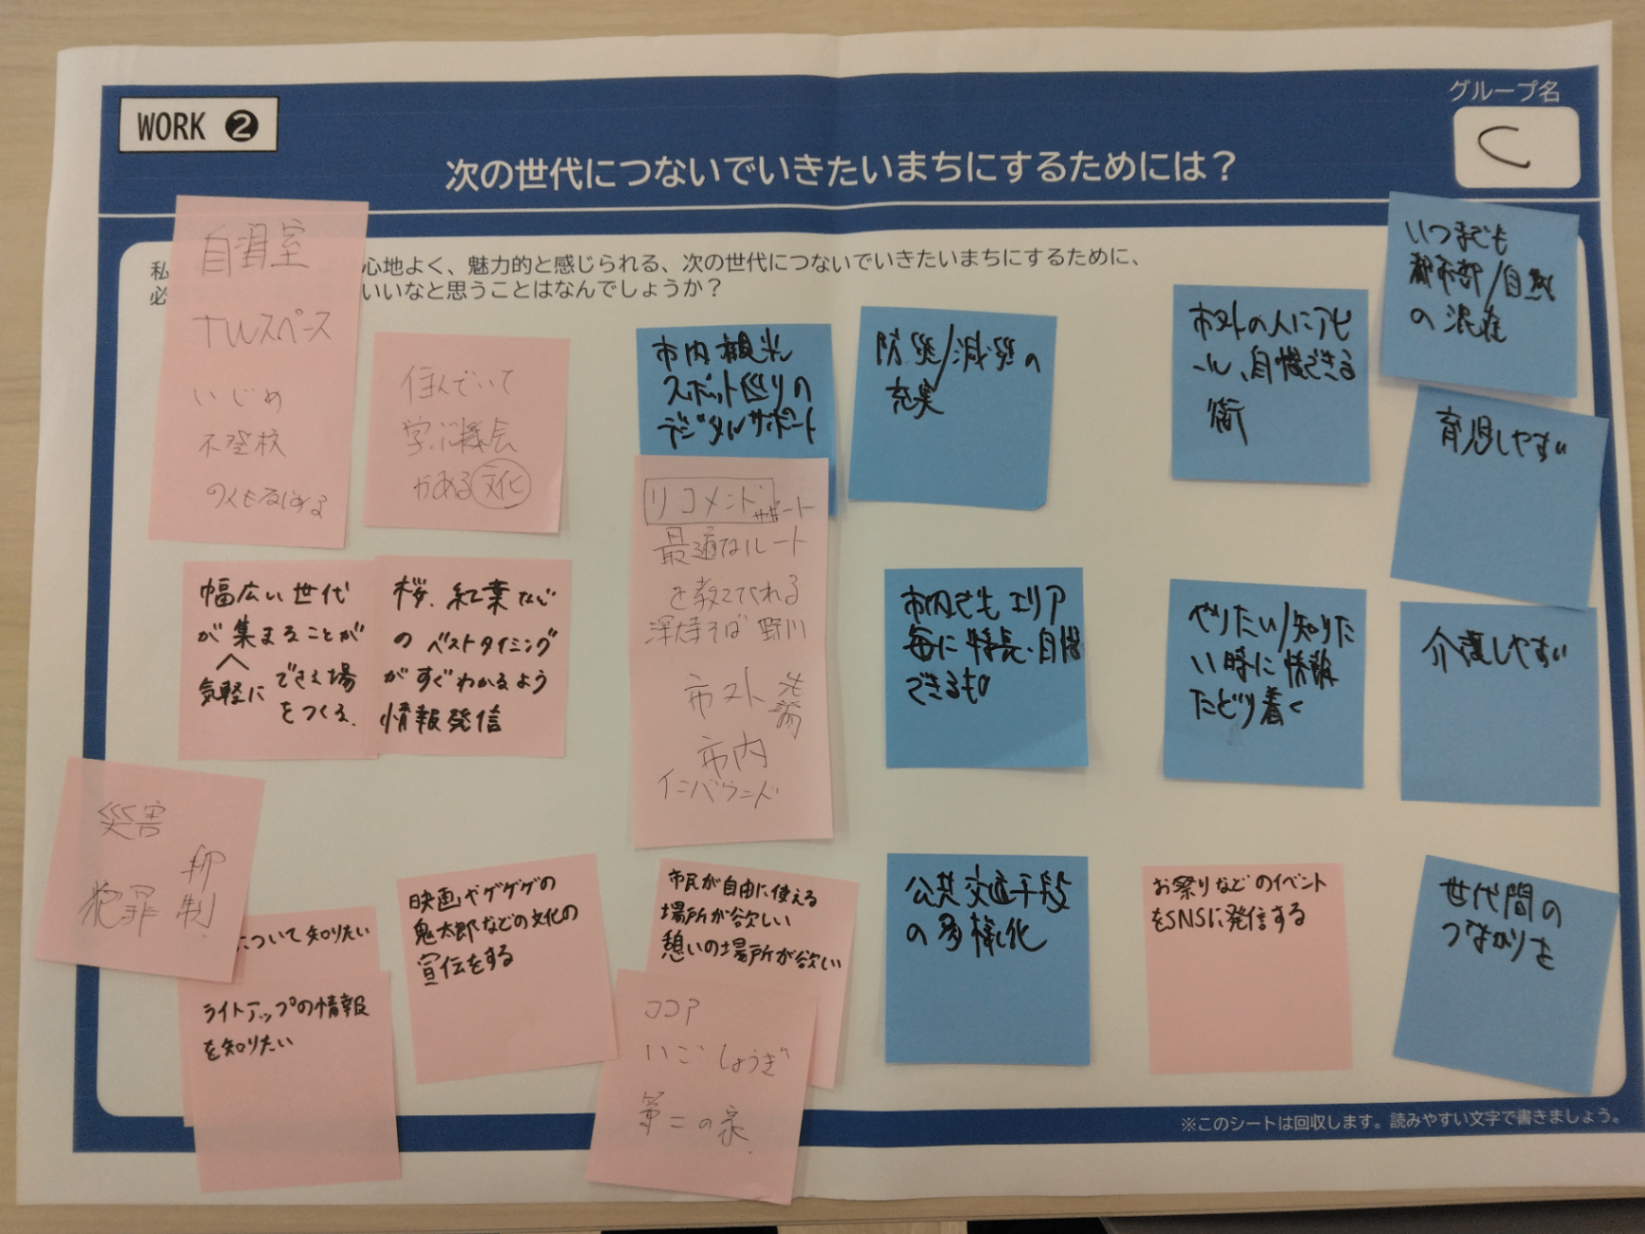 WORK ❷
グループ名
C
次の世代につないでいきたいまちにするためには？
私
心地よく、魅力的と感じられる、次の世代につないでいきたいまちにするために、
必
いいなと思うことはなんでしょうか？
自習室
TWスペース
いじめ
不登校
の人も
住んでいて
学ぶ機会
がある文化
市内観光
スポット巡りの
デジタルサポート
防災/減災の
充実
市外の人にアピ
ール、自慢できる
街
いつまでも
都市部/自然
の混在
育児しやすい
リコメンド サポート
最適なルート
を教えてくれる
深大寺そば 野川
市外
市内
インバウンド
幅広い世代
が集まることが
気軽に
できる場
をつくる.
桜、紅葉など
のベストタイミング
がすぐわかるよう
情報発信
市内でもエリア
毎に特長・自慢
できるもの
やりたい/知りた
い時に情報
たどり着く
介護しやすい
災害
犯罪
抑制
について知りたい
ライトアップの情報
を知りたい
映画やゲゲゲの
鬼太郎などの文化の
宣伝をする
市民が自由に使える
場所が欲しい
憩いの場所が欲しい
ココア
いご しょうぎ
第二の家.
公共交通手段
の多様化
お祭りなどのイベント
をSNSに発信する
世代間の
つながりを
※このシートは回収します。読みやすい文字で書きましょう。